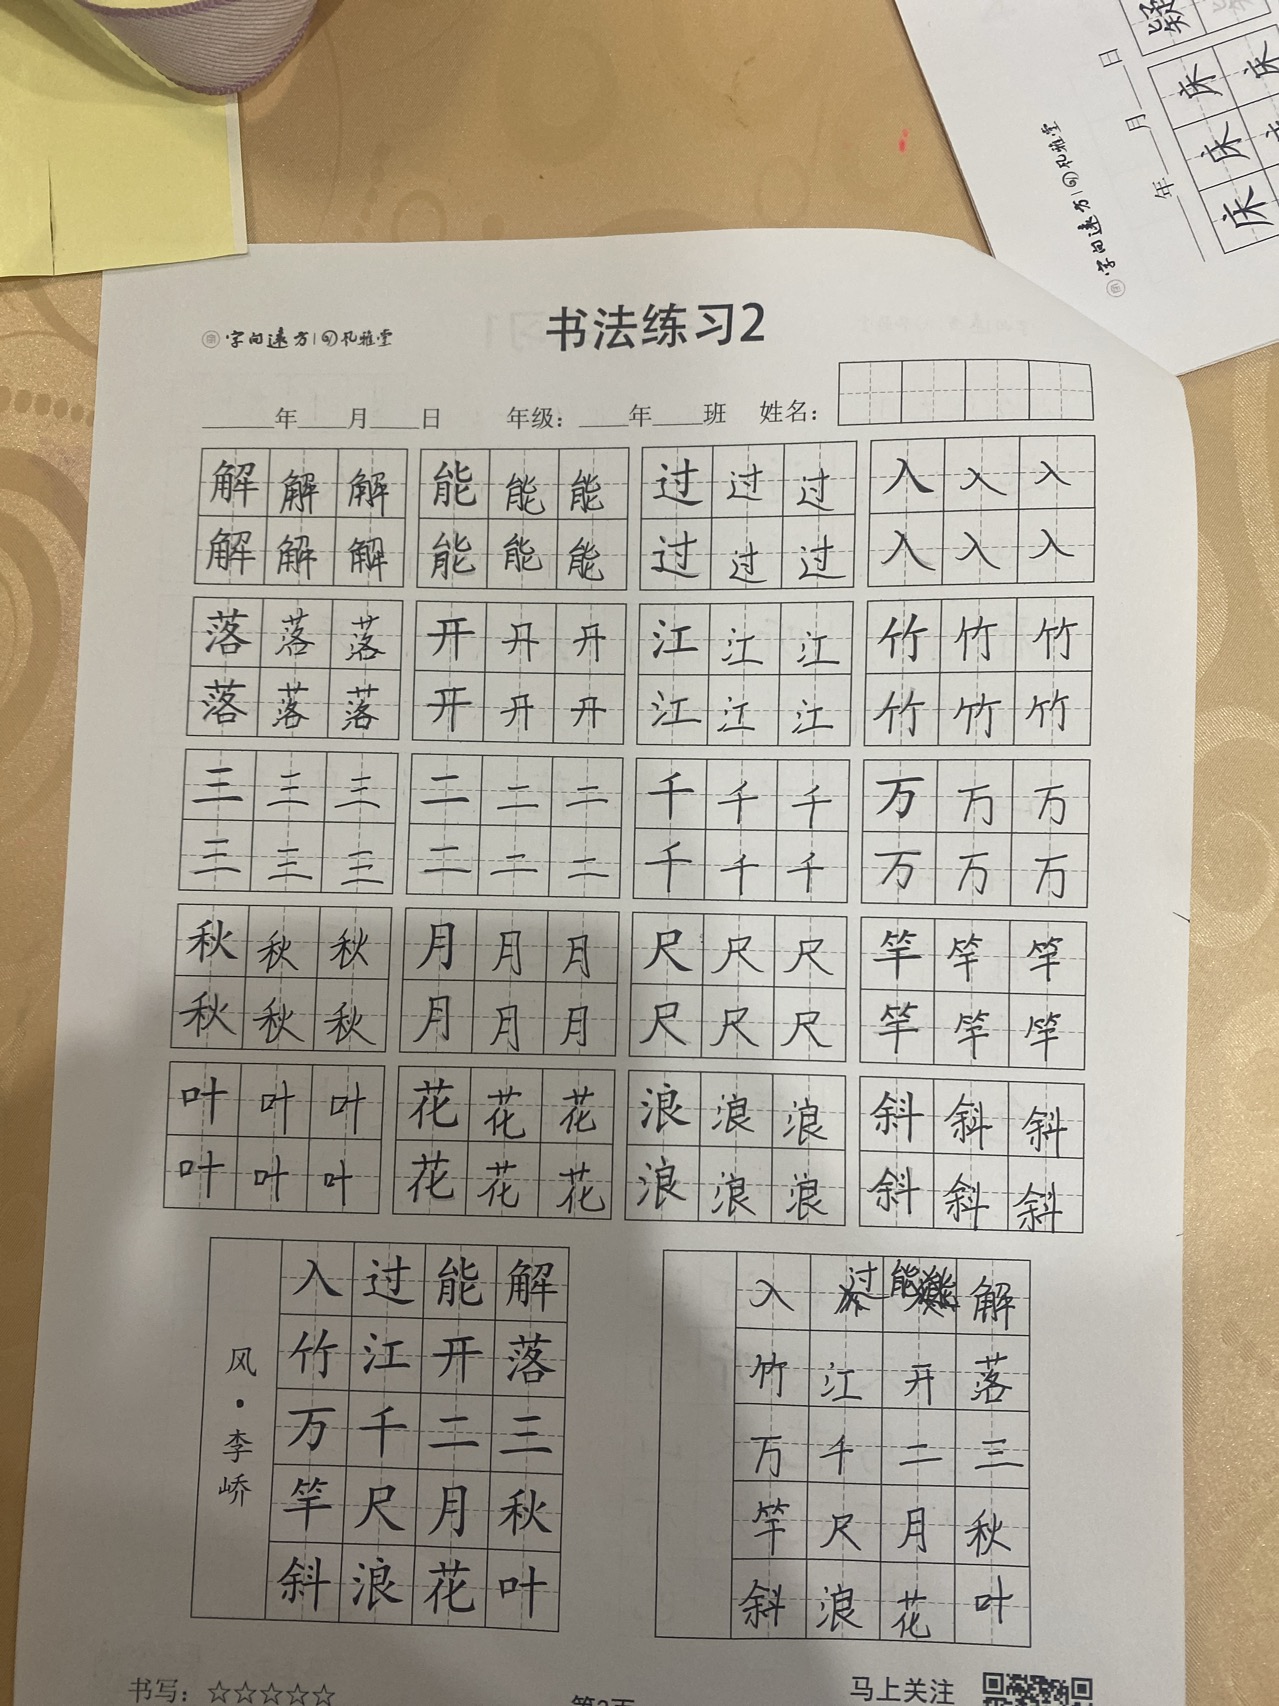 疑
日
月
年
床 床
床
床
字向远方 孔雅堂
字向远方 孔雅堂
书法练习2
年 月 日 年级： 年 班 姓名：
解 解 解 能 能 能 过 过 过 入 入 入
解 解 解 能 能 能 过 过 过 入 入 入
落 落 落 开 开 开 江 江 江 竹 竹 竹
落 落 落 开 开 开 江 江 江 竹 竹 竹
三 三 三 二 二 二 千 千 千 万 万 万
三 三 三 二 二 二 千 千 千 万 万 万
秋 秋 秋 月 月 月 尺 尺 尺 竿 竿 竿
秋 秋 秋 月 月 月 尺 尺 尺 竿 竿 竿
叶 叶 叶 花 花 花 浪 浪 浪 斜 斜 斜
叶 叶 叶 花 花 花 浪 浪 浪 斜 斜 斜
风·李峤
入 过 能 解
竹 江 开 落
万 千 二 三
竿 尺 月 秋
斜 浪 花 叶
入 过 能 解
竹 江 开 落
万 千 二 三
竿 尺 月 秋
斜 浪 花 叶
书写：☆☆☆☆☆
第2页
马上关注